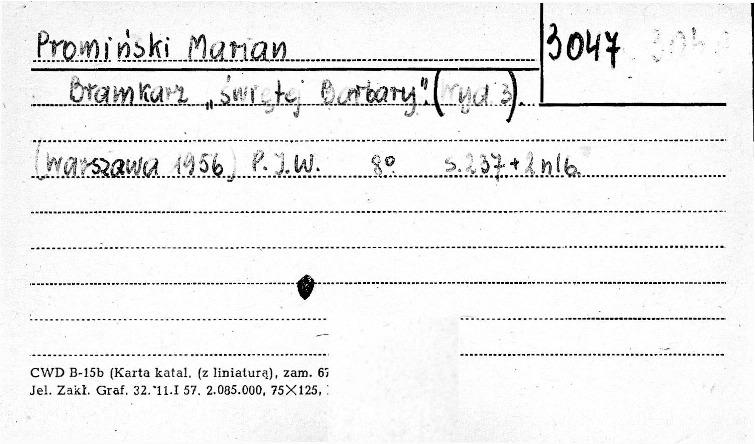 Promiński Marian
3047
Bramkarz „Świętej Barbary". (wyd 3).
(Warszawa 1956) P.I.W. 8° s. 237 + 2 nlb.
CWD B-15b (Karta katal. (z liniaturą), zam. 67
Jel. Zakł. Graf. 32. 11.I 57. 2.085.000, 75×125,